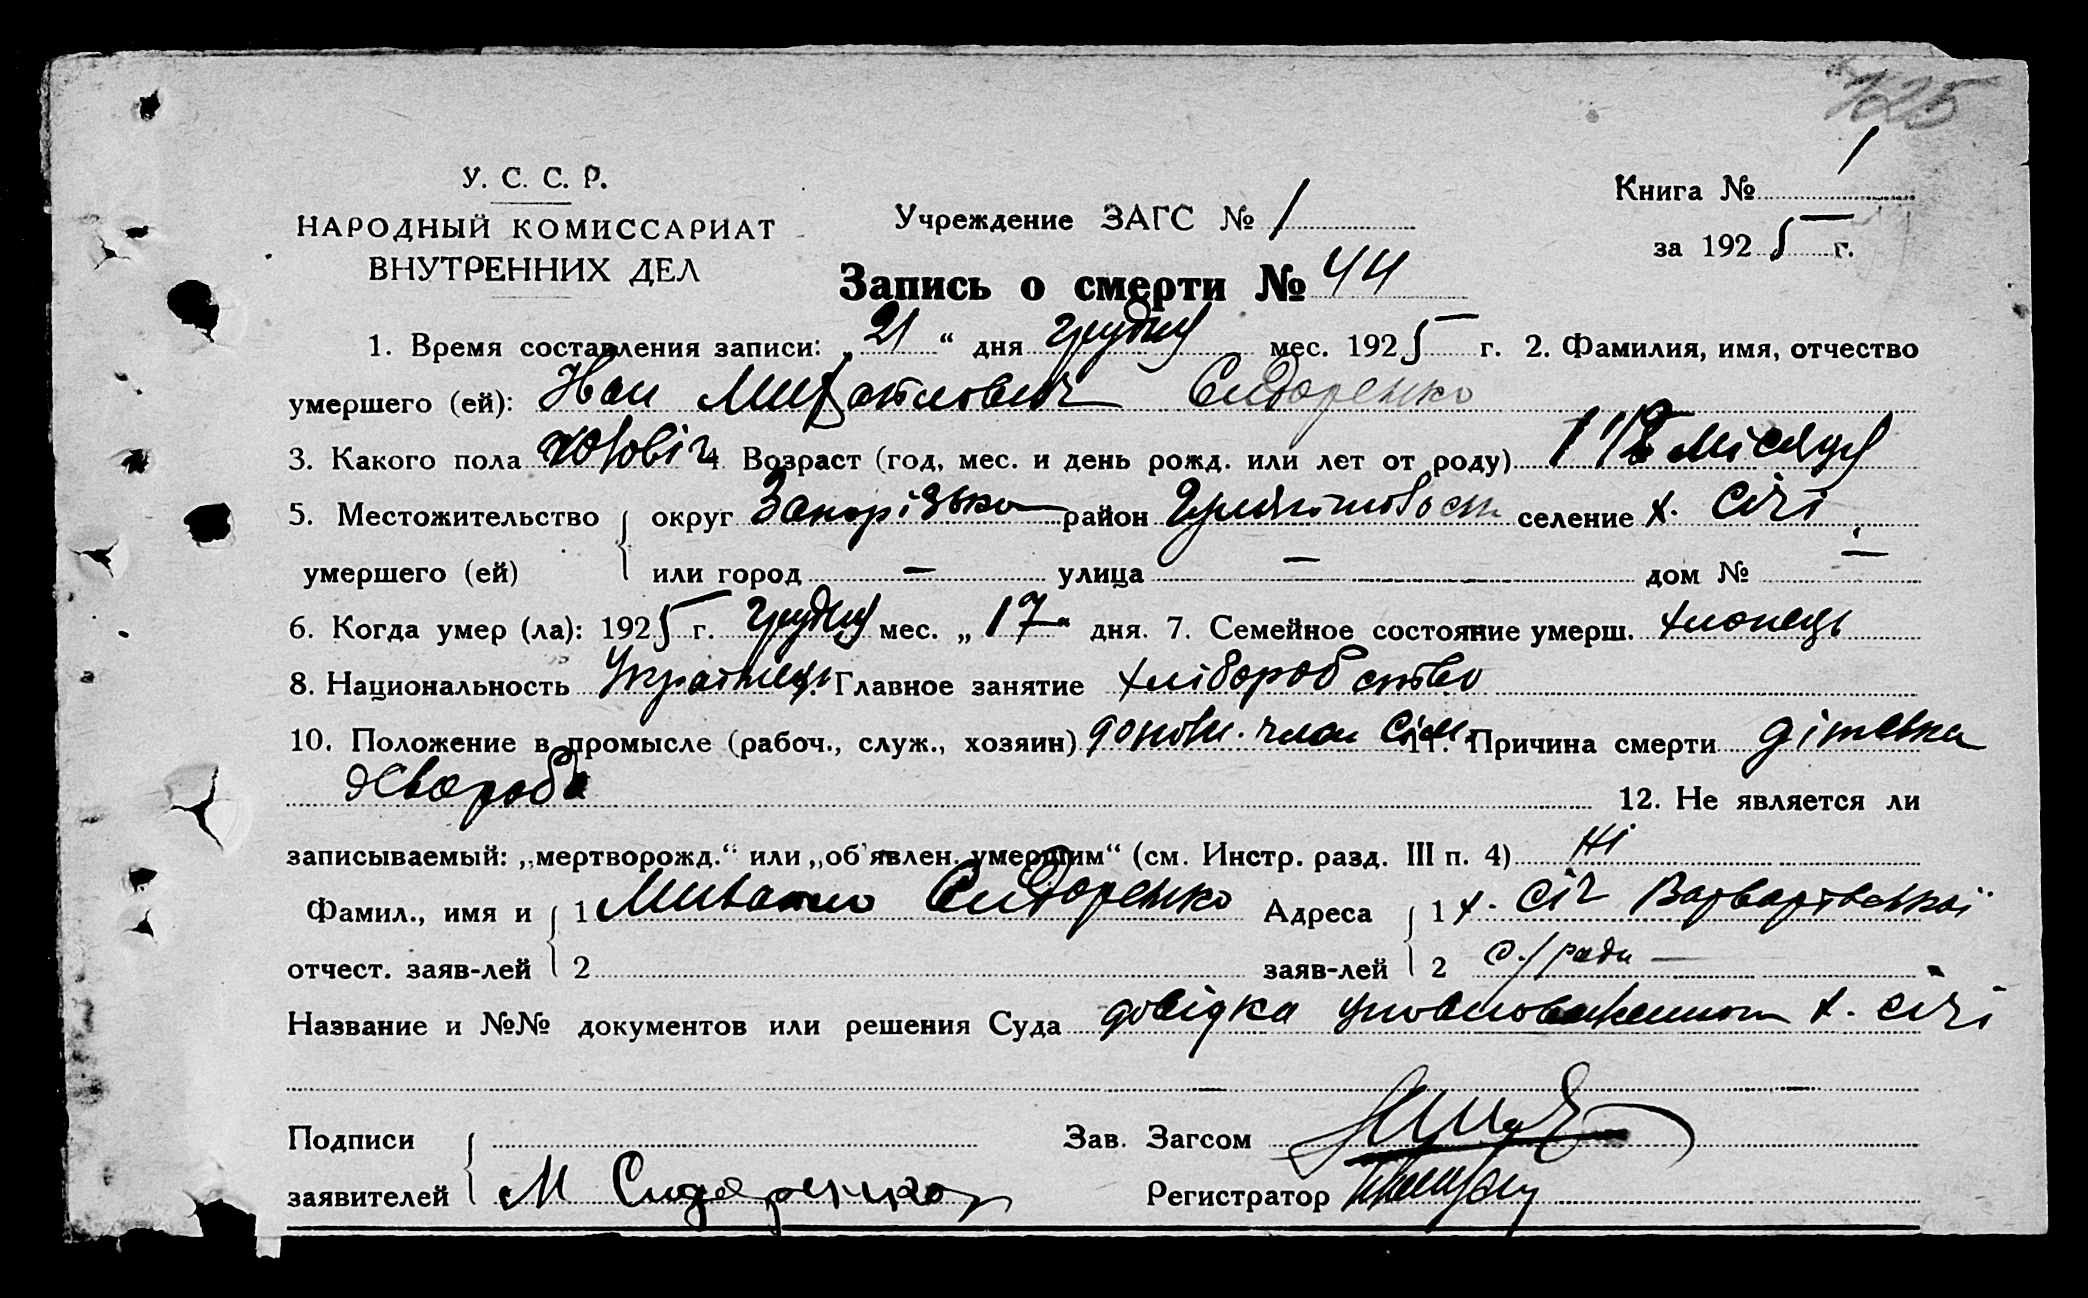 125
У. С. С. Р.
НАРОДНЫЙ КОМИССАРИАТ
ВНУТРЕННИХ ДЕЛ
Учреждение ЗАГС № 1
Книга № 1
за 1925 г.
Запись о смерти № 44
1. Время составления записи: „21“ дня грудня мес. 1925 г. 2. Фамилия, имя, отчество
умершего (ей): Іван Михайлович Сидоренко
3. Какого пола чоловіч 4 Возраст (год, мес. и день рожд. или лет от роду) 1 1/2 місяця
5. Местожительство округ Запорізька район селение х. Січі
умершего (ей) или город — улица — дом № —
6. Когда умер (ла): 1925 г. грудня мес. „17“ дня. 7. Семейное состояние умерш. хлопець
8. Национальность Українець 9. Главное занятие хліборобство
10. Положение в промысле (рабоч., служ., хозяин) член сім. 11. Причина смерти дітська
хвороба
12. Не является ли
записываемый: „мертворожд.“ или „об'явлен. умершим“ (см. Инстр. разд. III п. 4) Ні
Фамил., имя и 1 Михайло Сидоренко Адреса 1 х. Січ Варварівської
отчест. заяв-лей 2 заяв-лей 2 с/ради —
Название и №№ документов или решения Суда довідка уповноваженного х. Січі
Подписи Зав. Загсом
заявителей М Сидоренко Регистратор